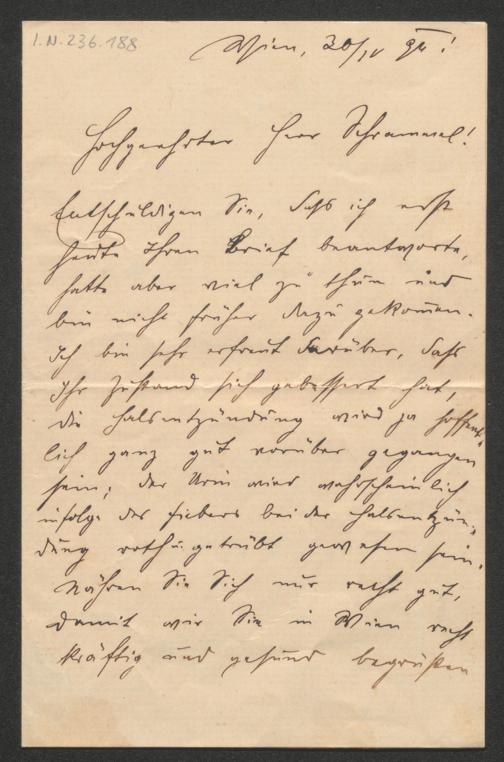 I.N.236.188
Wien, 30/IV 92!
Hochgeehrter Herr Schrammel!
Entschuldigen Sie, daſs ich erst
heute Ihren Brief beantworte,
hatte aber viel zu thun und
bin nicht früher dazu gekom̄en.
Ich bin sehr erfreut darüber, daſs
Ihr Zustand sich gebessert hat,
die Halsentzündung wird ja hoffent-
lich ganz gut vorüber gegangen
sein; der Urin wird wahrscheinlich
infolge des Fiebers bei der Halsentzün-
dung roth u. getrübt gewesen sein.
Nähren Sie Sich nur recht gut,
damit wir Sie in Wien recht
kräftig und gesund begrüßen